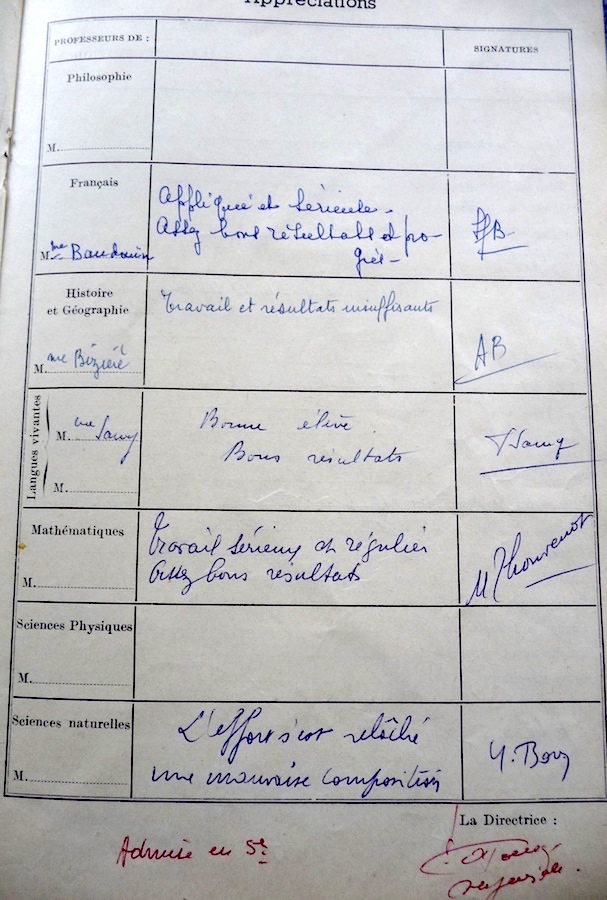 Appréciations
PROFESSEURS DE : SIGNATURES
Philosophie
M.
Français
Appliquée et sérieuse.
Assez bons résultats et pro-
grès-
Mme Baudouin
Histoire
et Géographie
Travail et résultats insuffisants
AB
Mme Bizière
Langues vivantes
M.
Bonne élève.
Bons résultats
M.
Mathématiques
Travail sérieux et régulier
Assez bons résultats
M Thouvenot
M.
Sciences Physiques
M.
Sciences naturelles
L'effort s'est relâché
une mauvaise composition
M.
La Directrice :
Admise en 5e